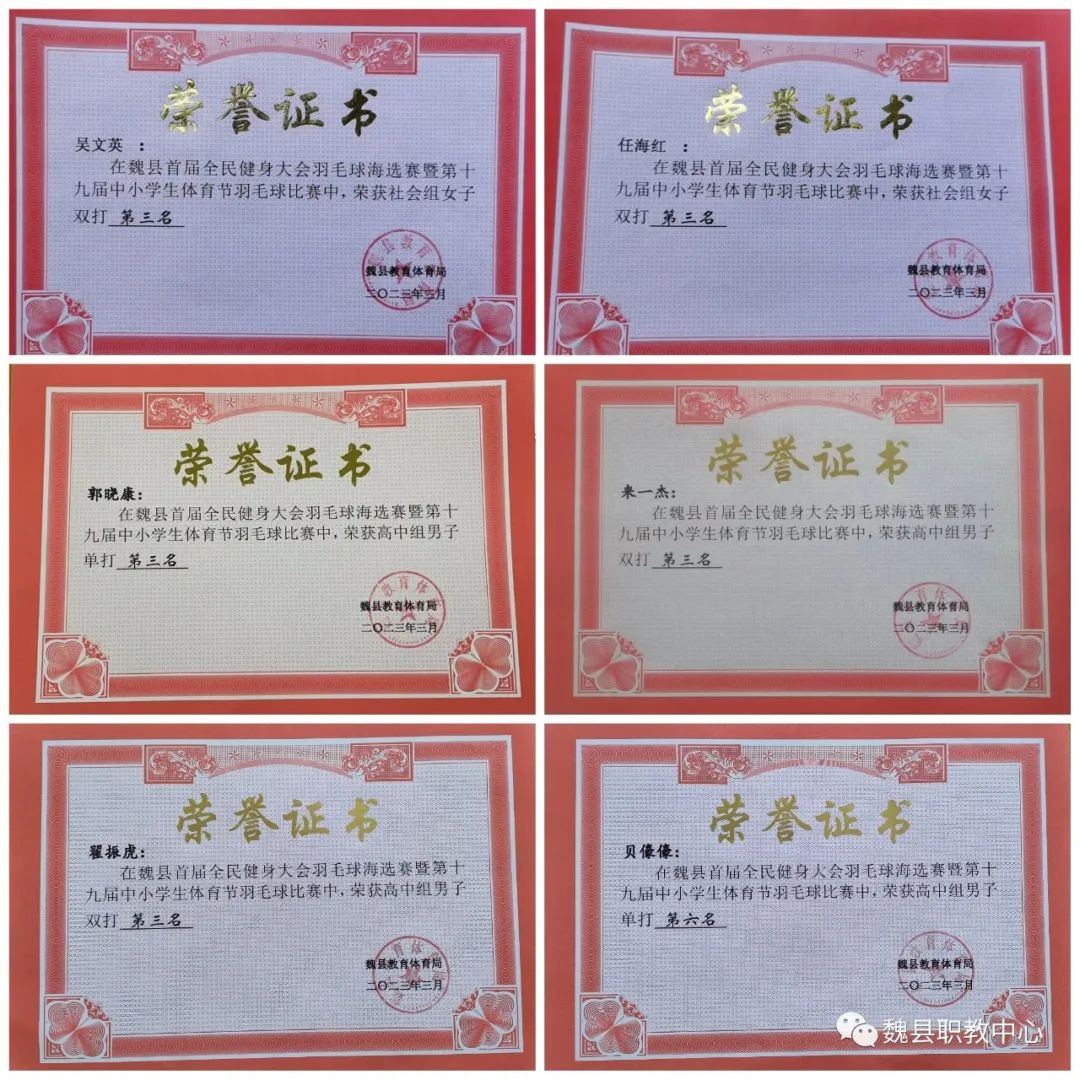 荣誉证书
吴文英 ：
在魏县首届全民健身大会羽毛球海选赛暨第十
九届中小学生体育节羽毛球比赛中，荣获社会组女子
双打 第三名
魏县教育体育局
二〇二三年三月
荣誉证书
任海红 ：
在魏县首届全民健身大会羽毛球海选赛暨第十
九届中小学生体育节羽毛球比赛中，荣获社会组女子
双打 第三名
魏县教育体育局
二〇二三年三月
荣誉证书
郭晓康：
在魏县首届全民健身大会羽毛球海选赛暨第十
九届中小学生体育节羽毛球比赛中，荣获高中组男子
单打 第三名
魏县教育体育局
二〇二三年三月
荣誉证书
来一杰：
在魏县首届全民健身大会羽毛球海选赛暨第十
九届中小学生体育节羽毛球比赛中，荣获高中组男子
双打 第三名
魏县教育体育局
二〇二三年三月
荣誉证书
翟振虎：
在魏县首届全民健身大会羽毛球海选赛暨第十
九届中小学生体育节羽毛球比赛中，荣获高中组男子
双打 第三名
魏县教育体育局
二〇二三年三月
荣誉证书
贝像像：
在魏县首届全民健身大会羽毛球海选赛暨第十
九届中小学生体育节羽毛球比赛中，荣获高中组男子
单打 第六名
魏县教育体育局
二〇二三年三月
魏县职教中心